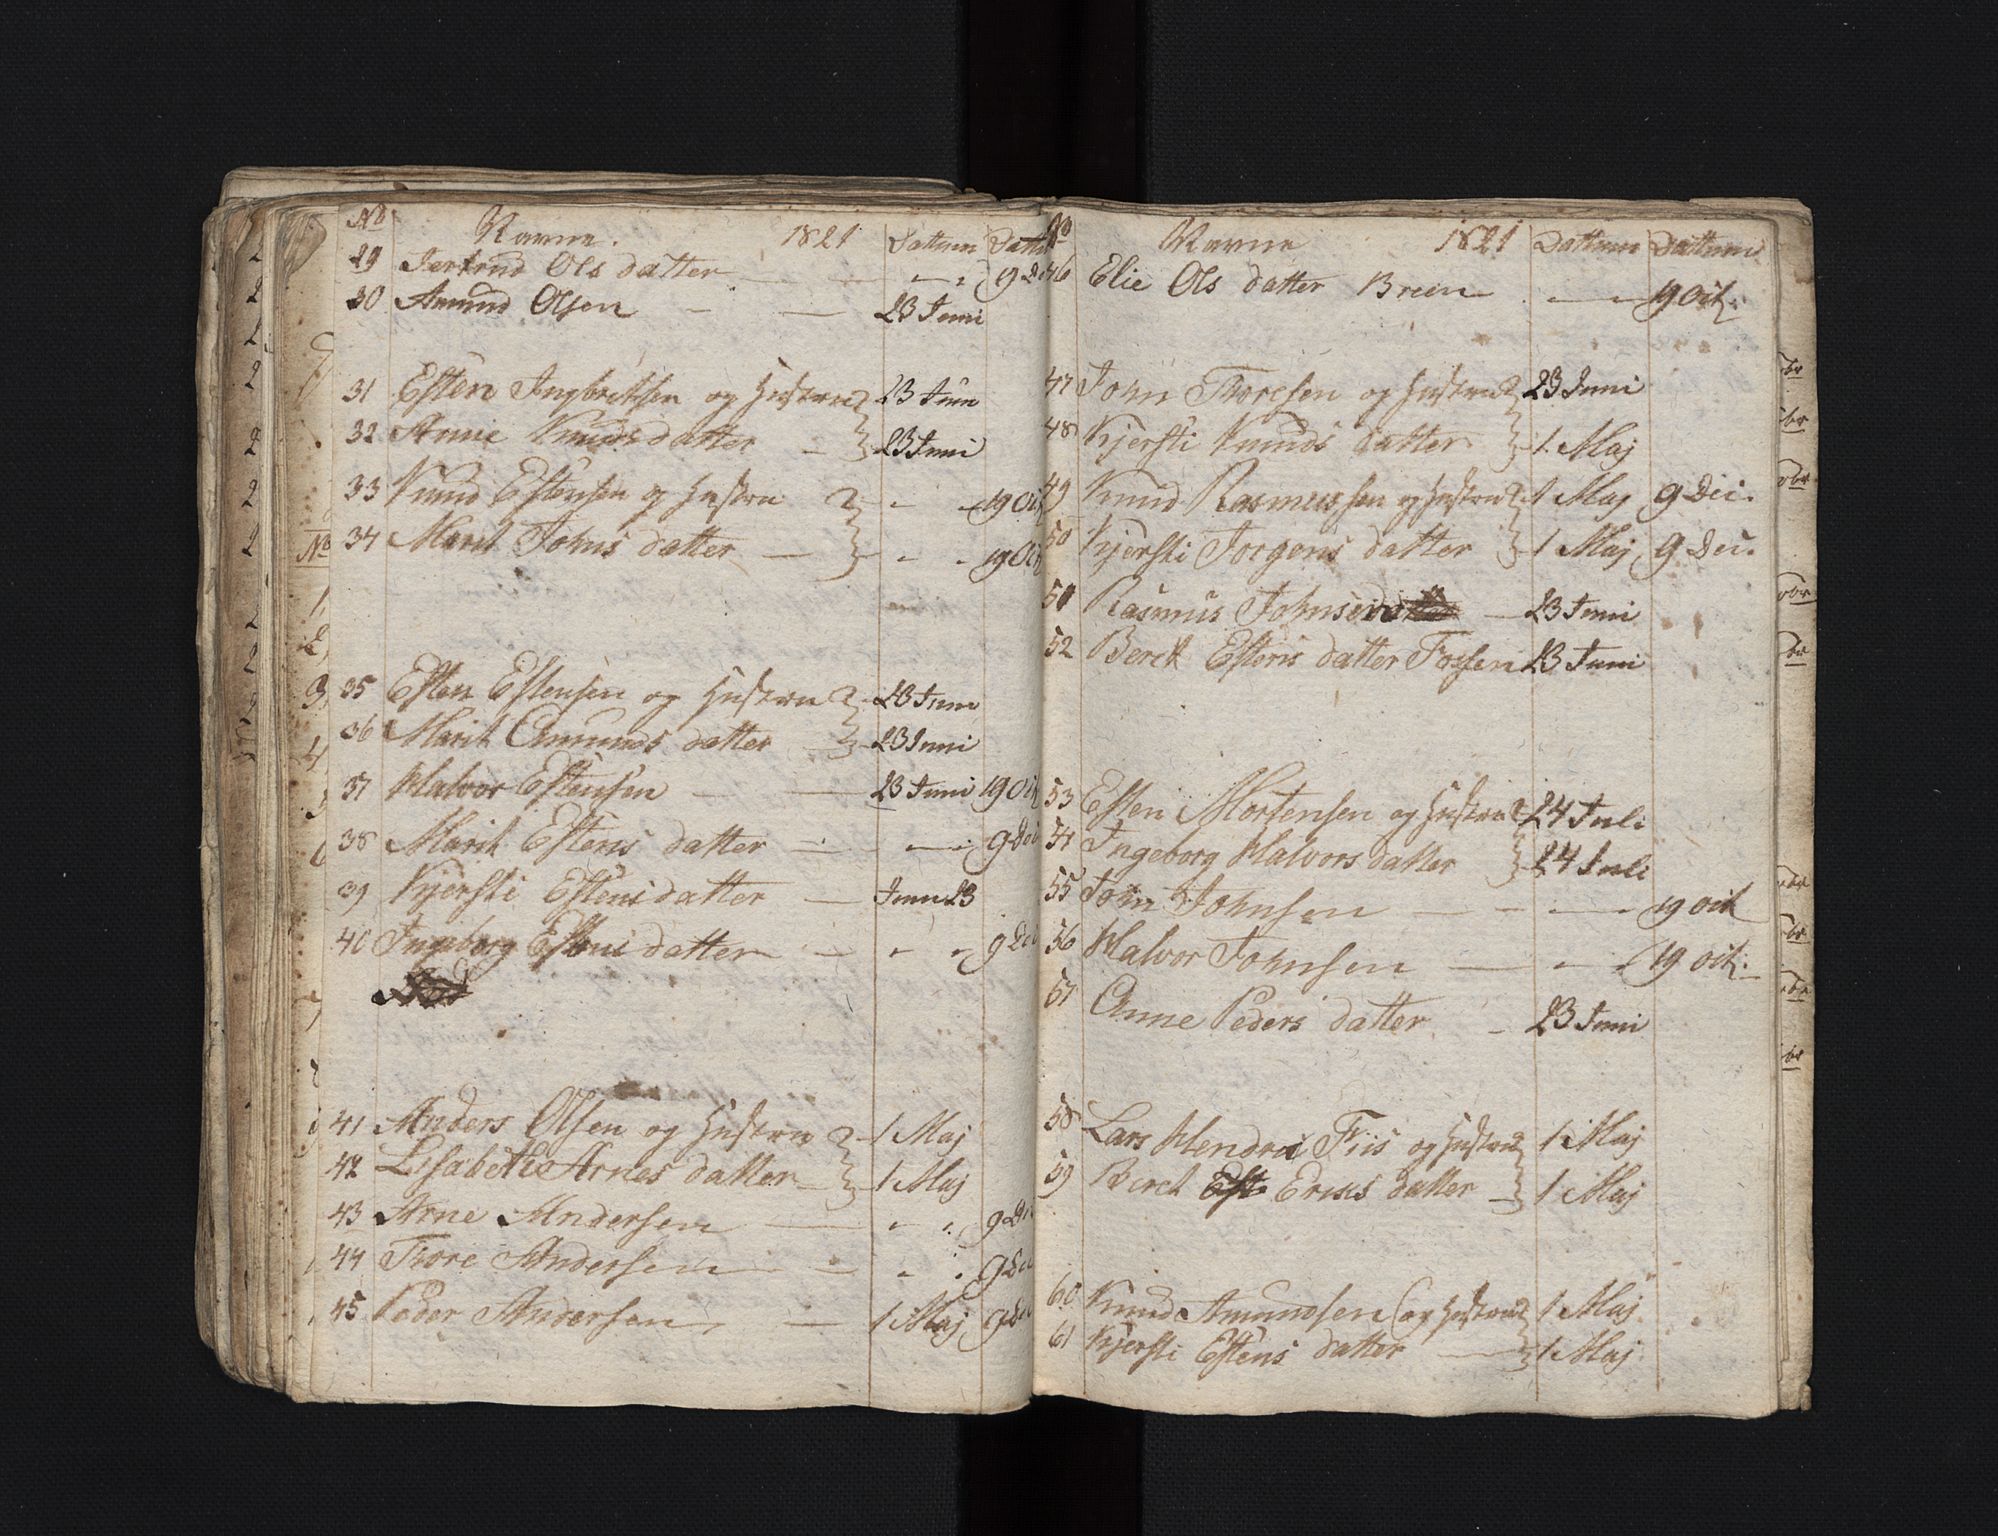 No Navne. 1821 Dattum Datt
29 Jertrud Ols datter — — 9 De
30 Amund Olsen — — 23 Juni
31 Esten Ingbritsen og Hustru 23 Jun
32 Anne Knuds datter — 23 Juni
33 Knud Estensen og Hustru - - 19 Oct
34 Marit Johns datter — - - 19 Oct
35 Esten Estensen og Hustru 23 Juni
36 Marit Amunds datter — 23 Juni
37 Halvor Estensen — — 23 Juni 19 Oct
38 Marit Estens datter — — 9 Dec
39 Kjersti Estens datter — Juni 23
40 Ingeborg Estens datter — - - 9 Dec
41 Anders Olsen og Hustru 1 Maj
42 Lisabeth Arnes datter 1 Maj
43 Arne Andersen — - - 9 Dec
44 Thore Andersen — - - 9 Dec
45 Peder Andersen — 1 Maj 9 Dec
No Navne 1821 Dattum Dattum
46 Elie Ols datter Breen — 19 Oct.
47 John Thoresen og Hustru 23 Juni
48 Kjersti Knuds datter 1 Maj
49 Knud Rasmussen og Hustru 1 Maj 9 Dec.
50 Kjersti Jorgens datter 1 Maj 9 Dec.
51 Rasmus Johnsen — 23 Juni
52 Beret Estens datter Fossen 23 Juni
53 Esten Mortensen og Hustru 24 Juli
54 Ingeborg Halvors datter 24 Juli
55 John Johnsen — - — 19 oct
56 Halvor Johnsen — — 19 oct.
57 Anne Peders datter - 23 Juni
58 Lars Hendri Fiis og Hustru 1 Maj
59 Beret Erics datter — 1 Maj
60 Knud Amundsen (og Hustru 1 Maj
61 Kjersti Estens datter — 1 Maj